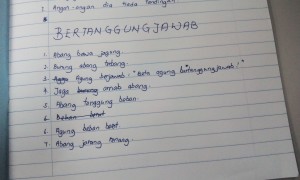 7. Angan-angan dia tiada
BERTANGGUNGJAWAB
1. Abang bawa jagung.
2. Burung abang terbang.
3. Agung berjawab : "Beta agung bertanggungjawab!"
4. Jaga arnab abang.
5. Abang tanggung beban
6. Beban berat
6. Agung beban berat
7. Abang jarang menang.